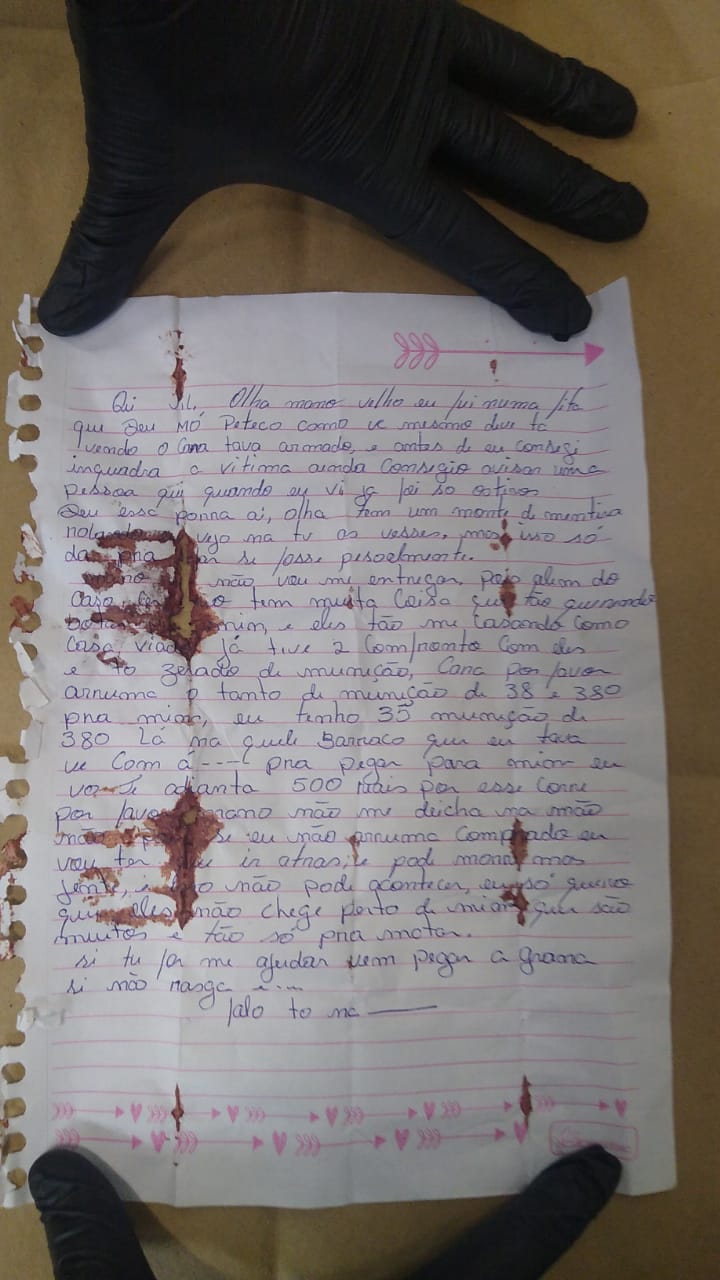 Oi Olha mano velho eu fui numa fita
que Deu MÓ Peteco como ve mesmo deve tá
vendo o Cana tava armado, e antes de eu consegi
inquadra a vitima ainda Consegio avisar uma
pessoa que quando eu vi ja foi so os tiros
Deu essa porra ai, olha tem um monte de mentira
vejo na tv as vesses, mas isso só
da pra se fosse pesoelmente.
mano não vou me entregar, pois alem do
Caso tem muita Coisa que tão querendo
mim, e eles tão me Casando como
Casa viado já tive 2 Comfronto Com eles
e to zerado de munição, Cara por favor
arruma o tanto de munição de 38 e 380
pra mim, eu tenho 35 munição de
380 Lá na quele Barraco que eu tava
ve Com a ---- pra pegar para mim eu
vo Te adianta 500 mais por esse Corre
por favor mano não me deicha na mão
não se eu não arruma Comprado eu
vou ter que ir atras, e pode morre mas
jente, i não pode acontecer, eu só quero
que eles não chege perto de mim que são
muitos e tão só pra matar.
si tu for me ajudar vem pegar a grana
si não rasga
falo to na ——